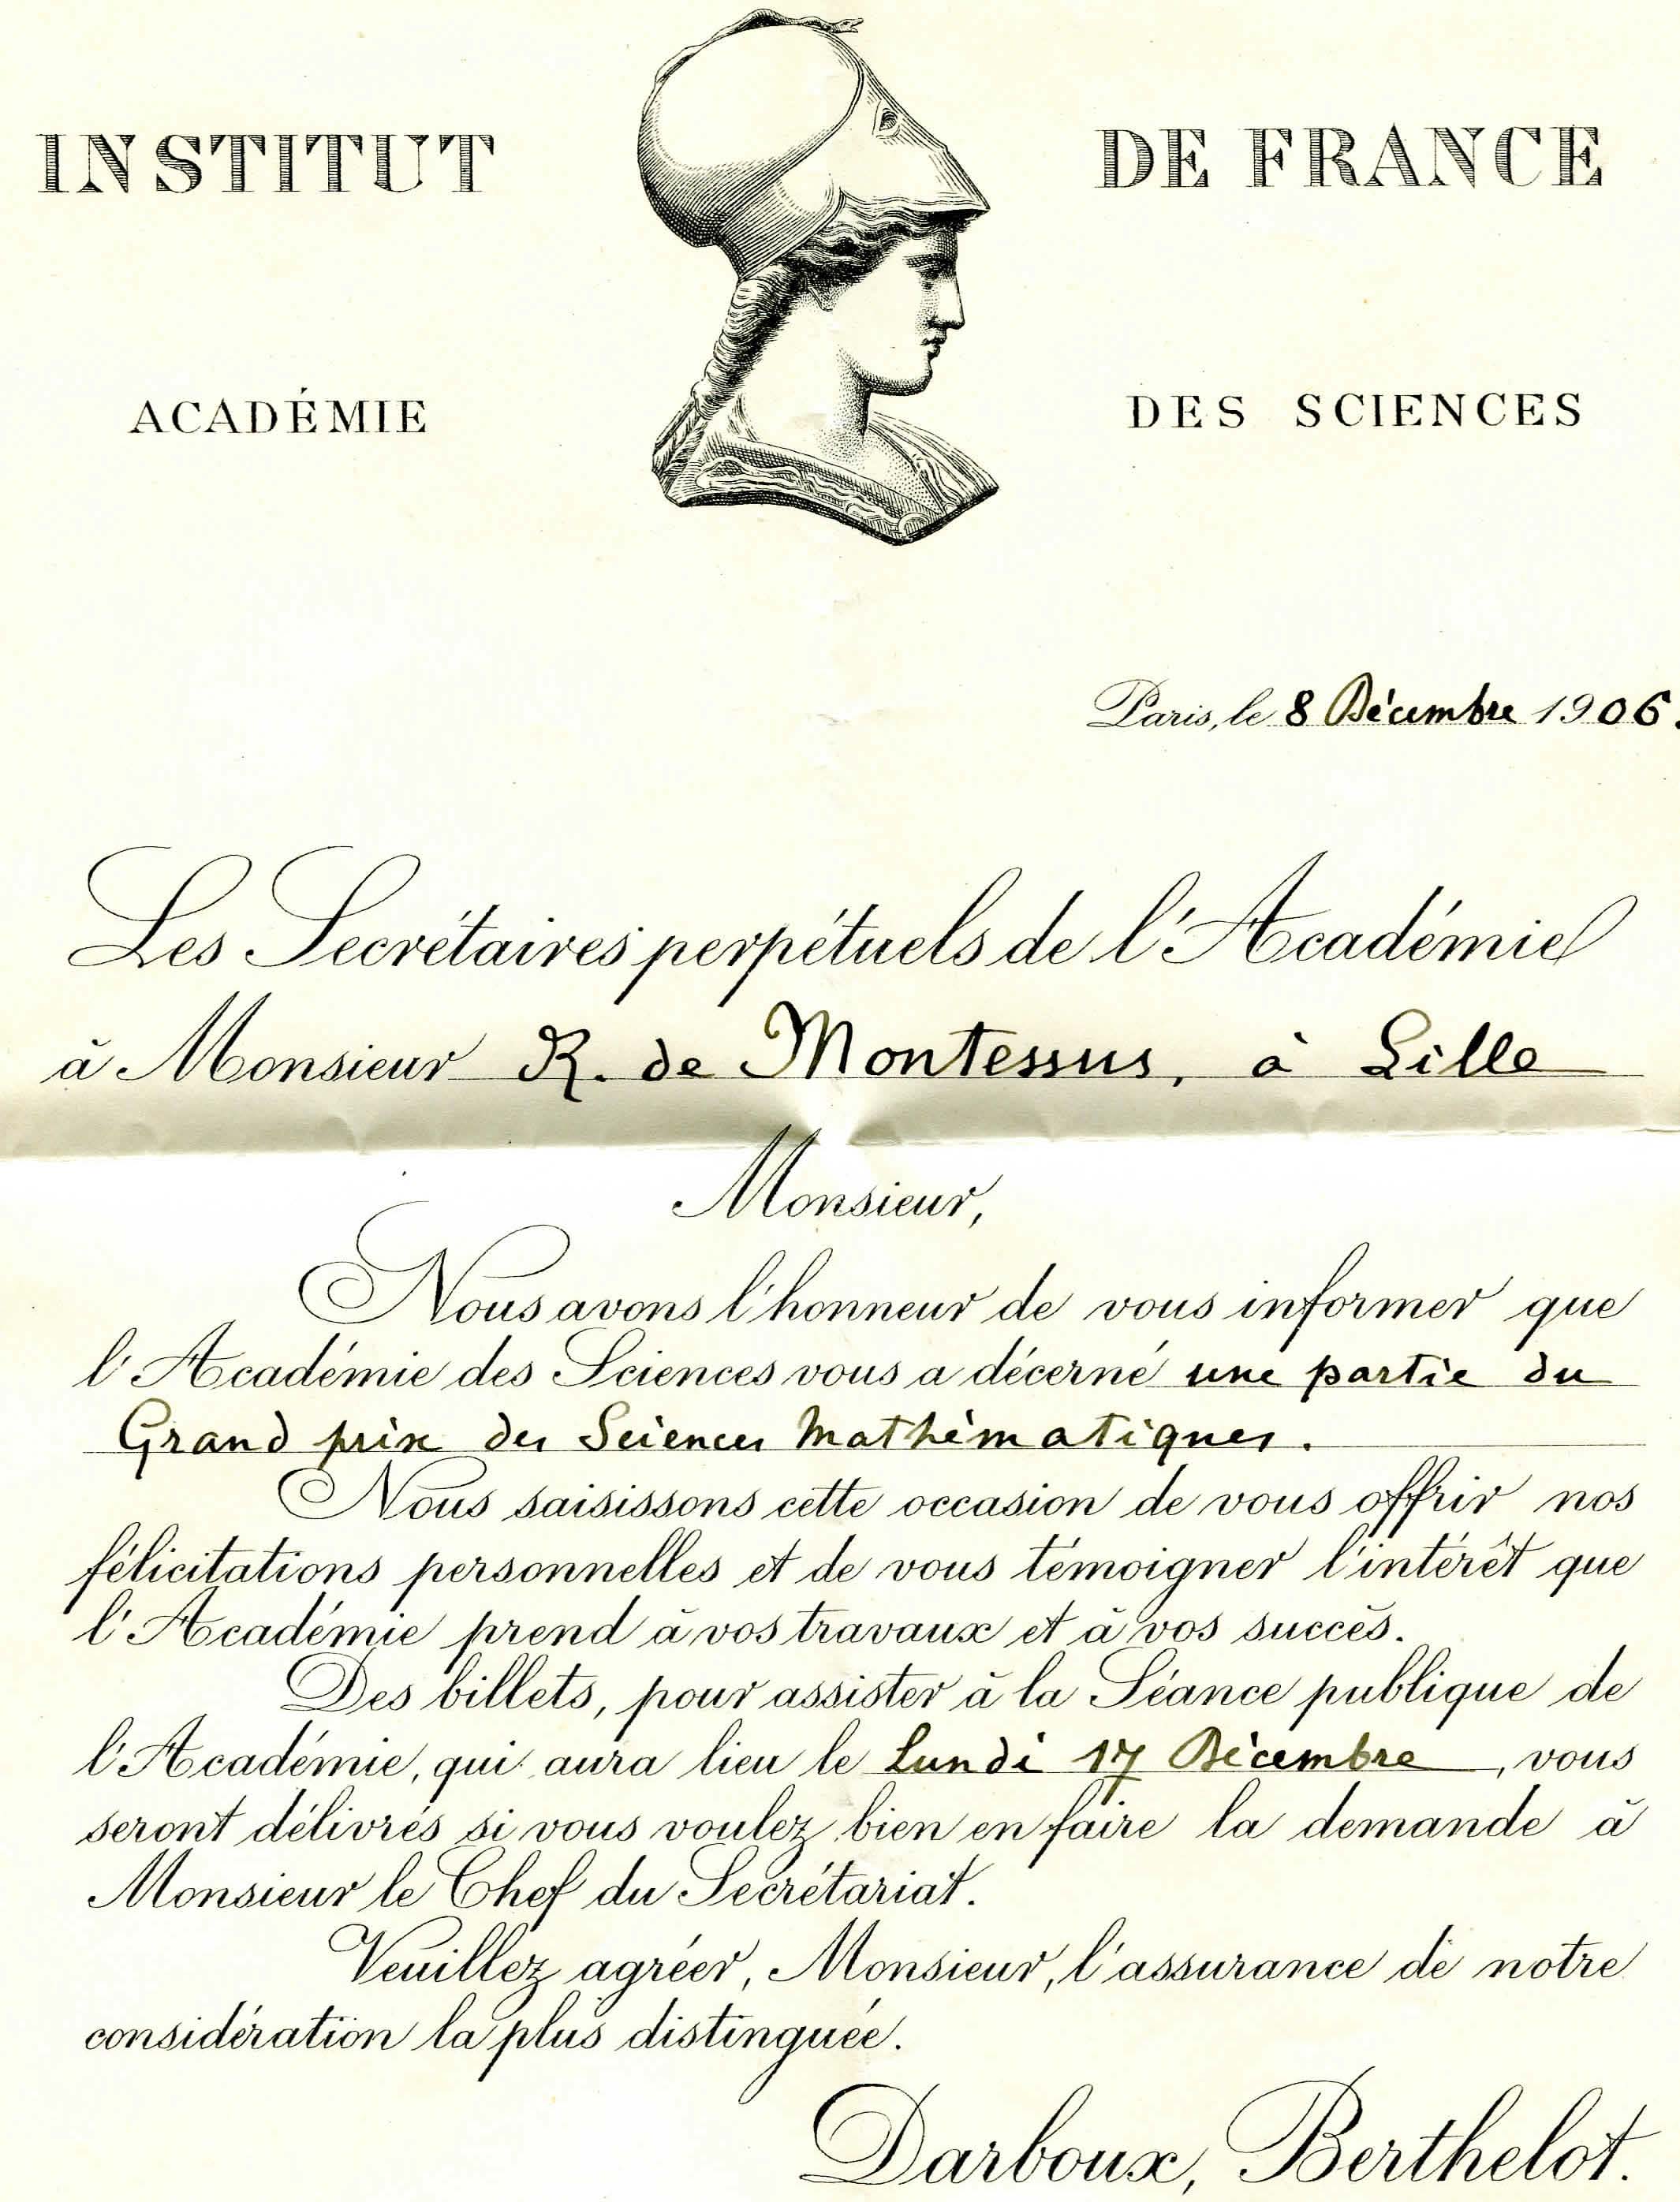 INSTITUT DE FRANCE
ACADÉMIE DES SCIENCES
Paris, le 8 Décembre 1906.
Les Secrétaires perpétuels de l'Académie
à Monsieur R. de Montessus, à Lille
Monsieur,
Nous avons l'honneur de vous informer que
l'Académie des Sciences vous a décerné une partie du
Grand prix des Sciences Mathématiques.
Nous saisissons cette occasion de vous offrir nos
félicitations personnelles et de vous témoigner l'intérêt que
l'Académie prend à vos travaux et à vos succès.
Des billets, pour assister à la Séance publique de
l'Académie, qui aura lieu le Lundi 17 Décembre, vous
seront délivrés si vous voulez bien en faire la demande à
Monsieur le Chef du Secrétariat.
Veuillez agréer, Monsieur, l'assurance de notre
considération la plus distinguée.
Darboux, Berthelot.